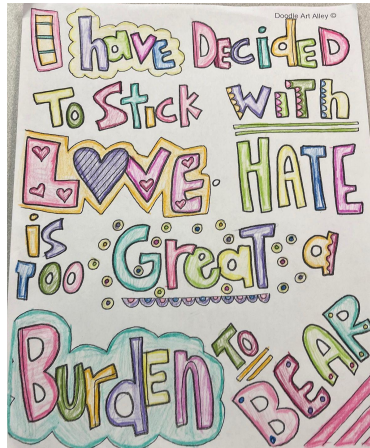 Doodle Art Alley ©
I have DeciDeD
To Stick with
LOVE. HATE
is
TOO Great a
BurDen TO BEAR